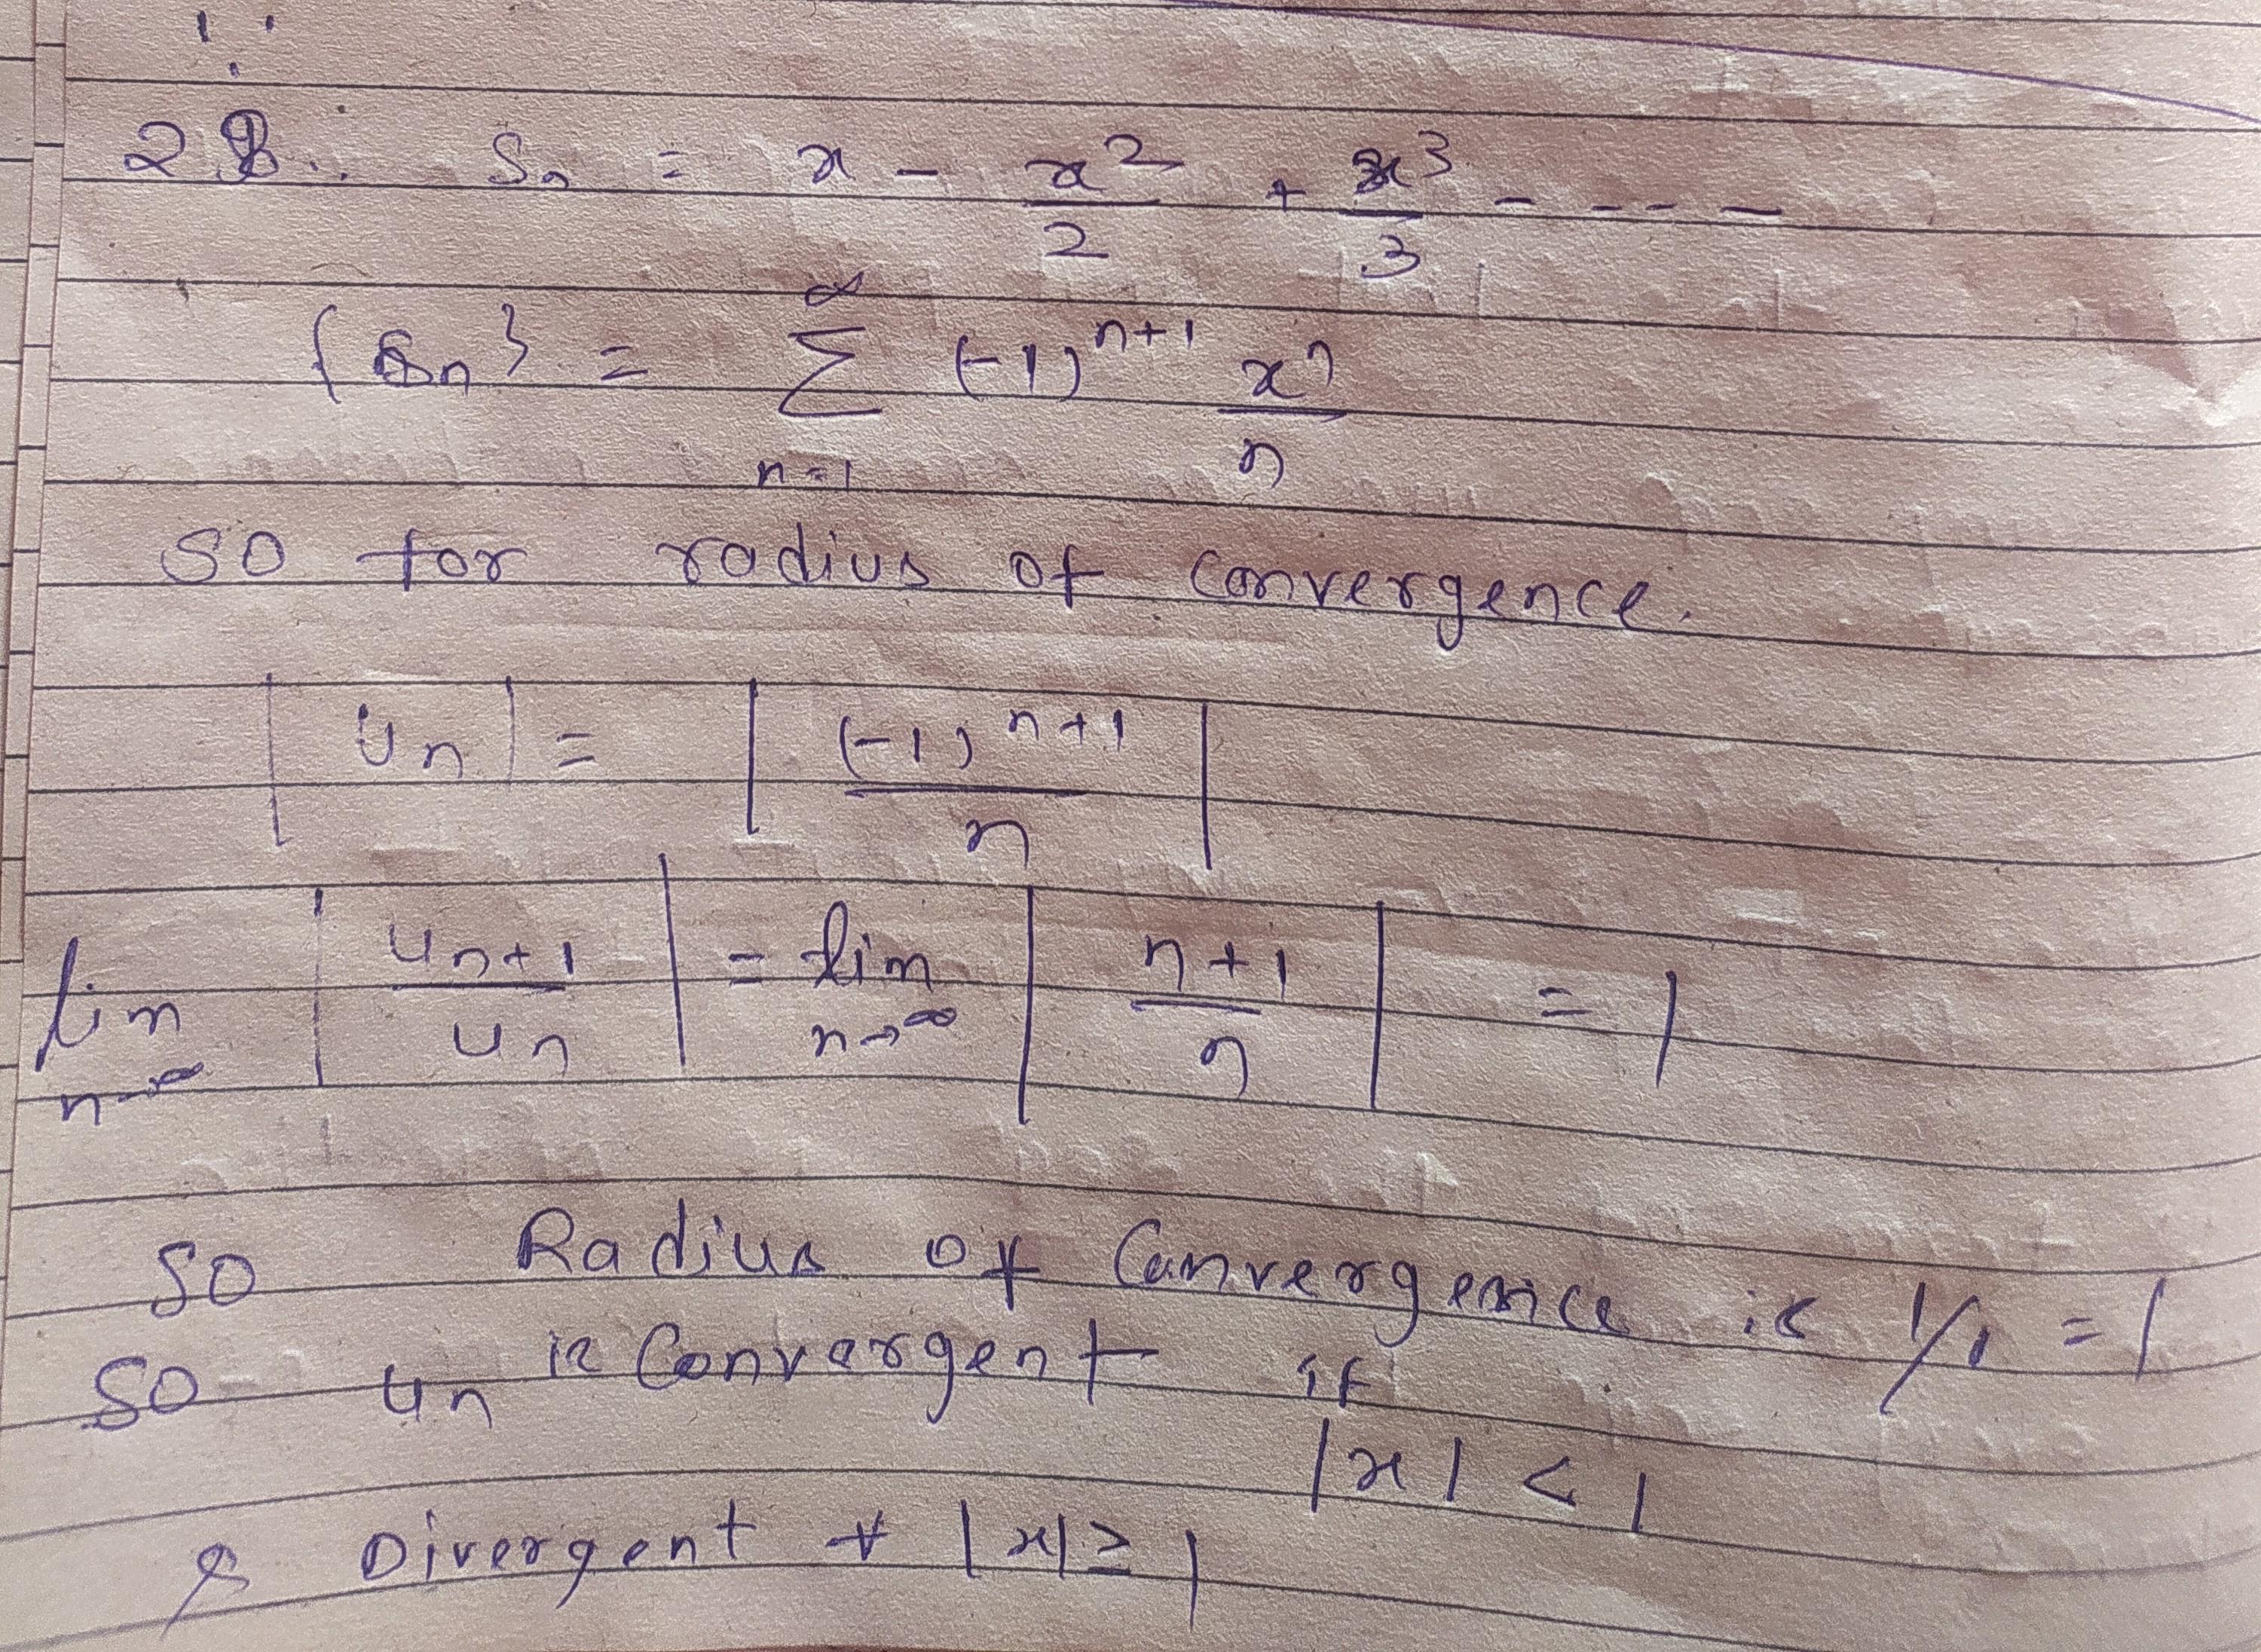 28. Sn = x - x²/2 + x³/3 - - - -
{Sn} = ∞ Σ n=1 (-1)^n+1 x^n/n
SO for radius of convergence.
|Un| = |(-1)^n+1/n|
lim n→∞ |Un+1/Un| = lim n→∞ |n+1/n| = 1
SO Radius of Convergence is 1/1 = 1
SO Un is Convergent if
|x| < 1
& Divergent ∀ |x| ≥ 1